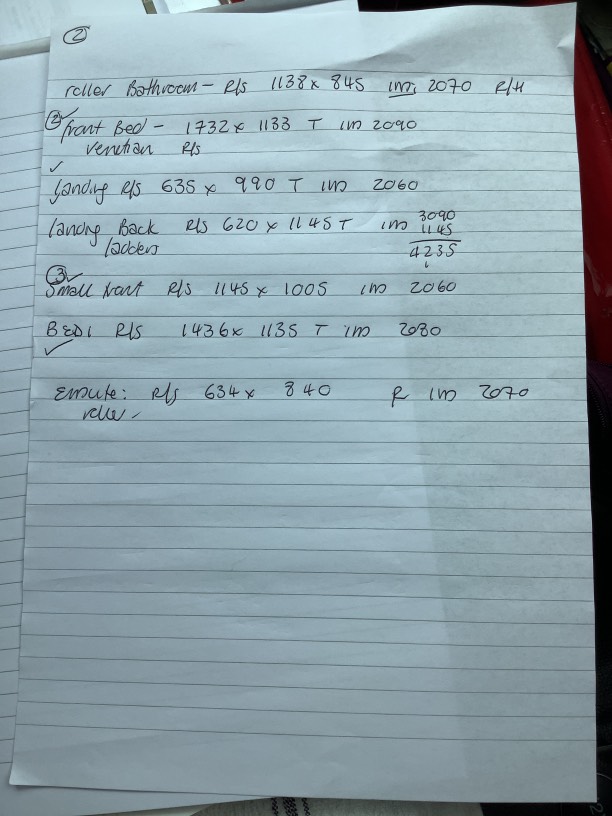 2
roller Bathroom - R/s 1138 x 845 im, 2070 R/H
2 front Bed - 1732 x 1133 T im 2090
venetian R/s
Landing R/s 635 x 990 T im 2060
Landing Back R/s 620 x 1145 T im 3090
ladders 1145
4235
3
Small front R/s 1145 x 1005 im 2060
BED1 R/s 1436 x 1135 T im 2080
Ensuite: R/s 634 x 840 R im 2070
roller